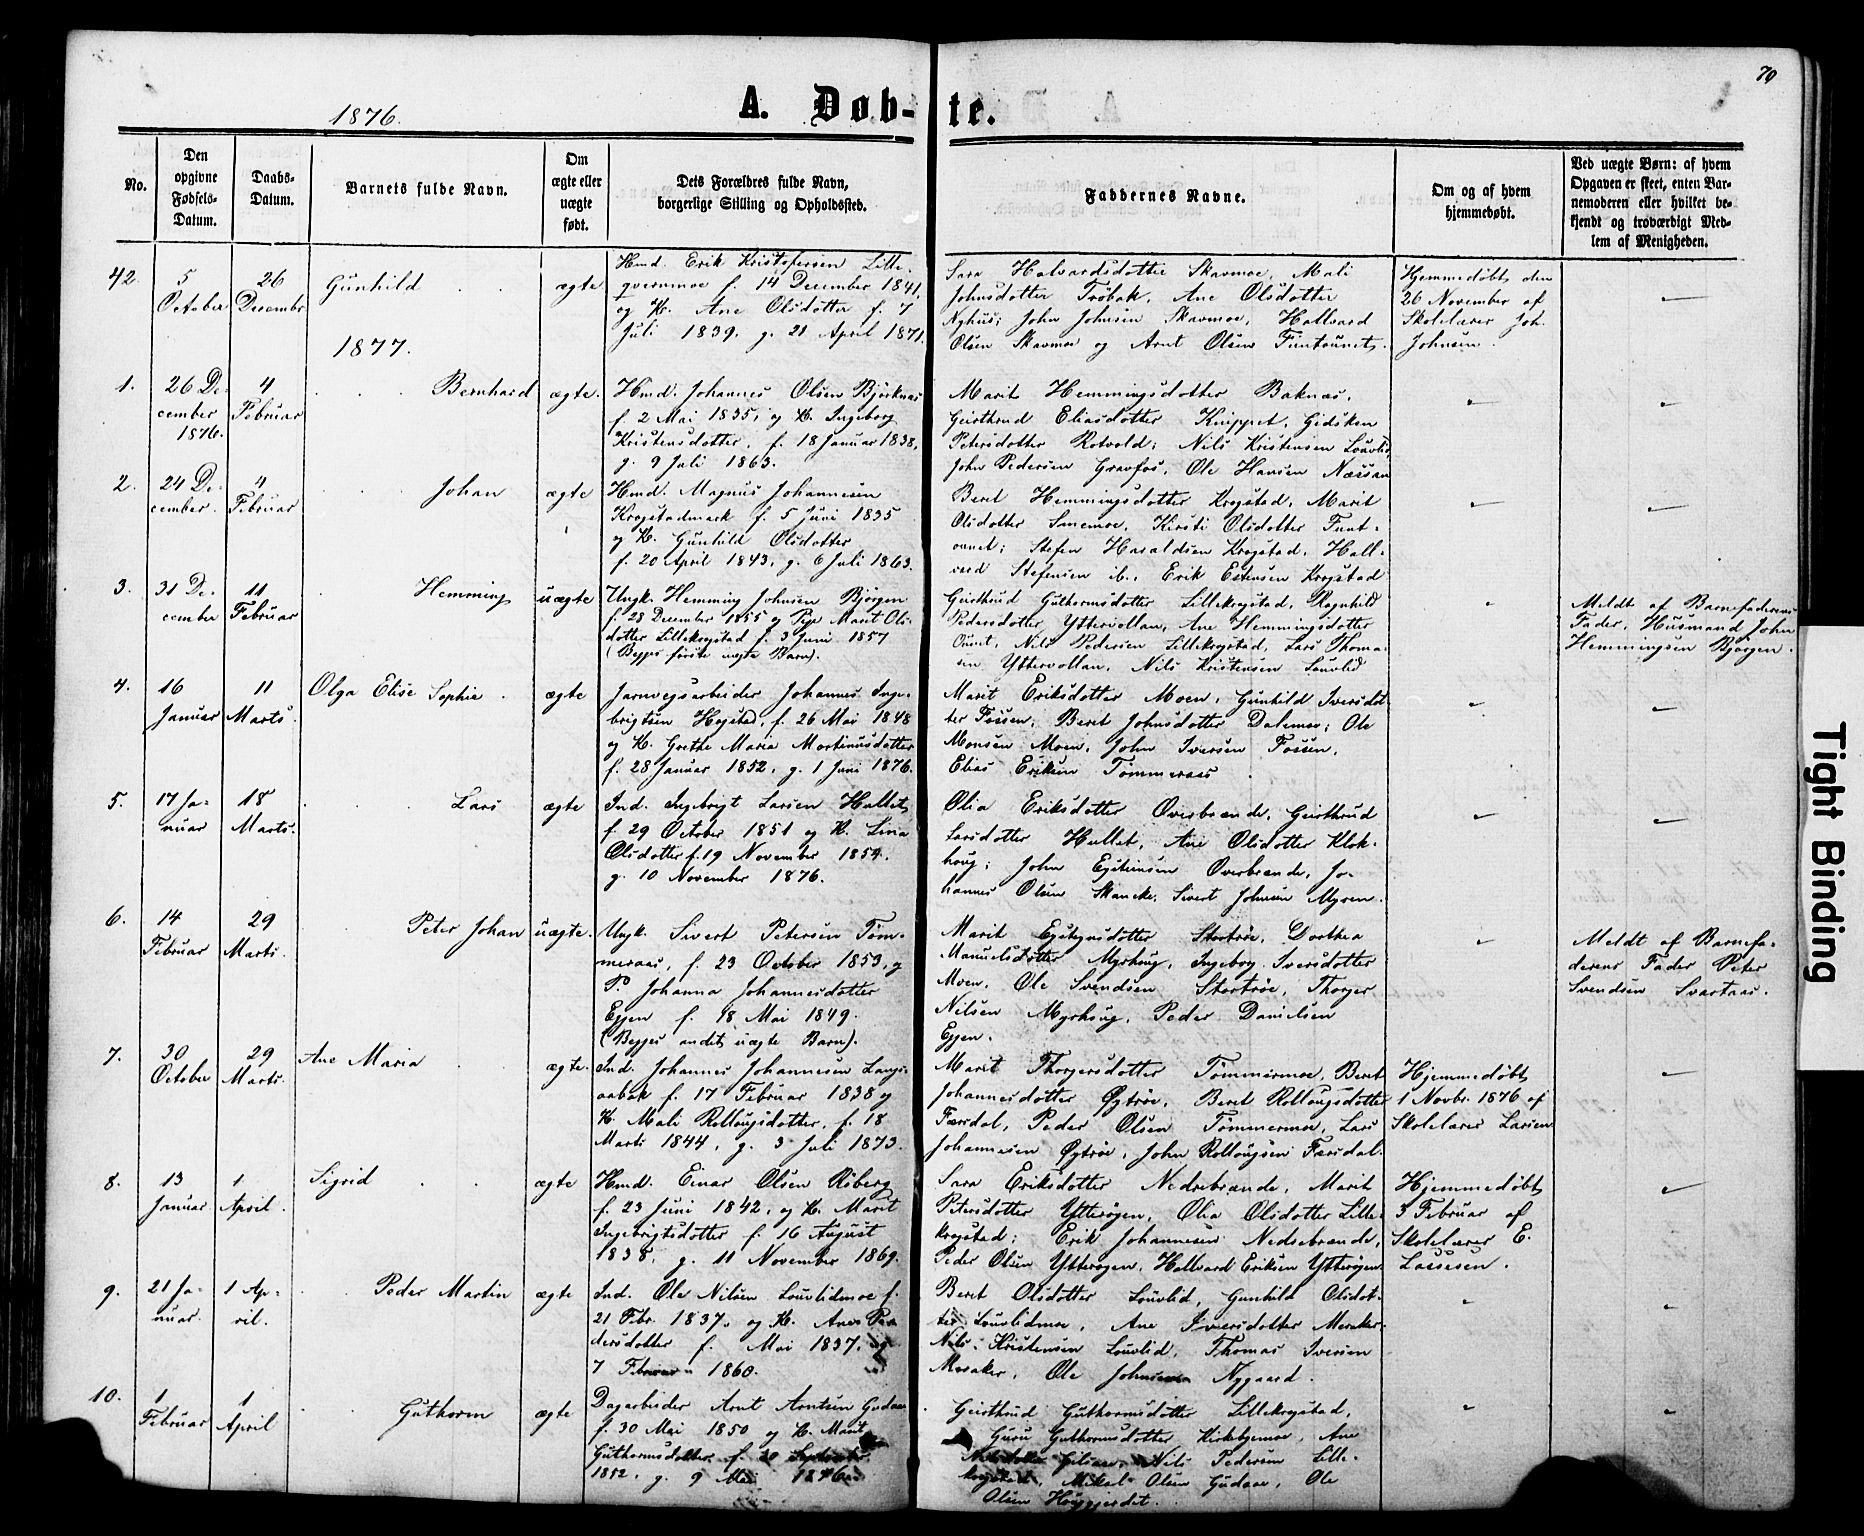 70
1876.
A. Døb-te.
No.
Den opgivne Fødsels-Datum.
Daabs-Datum.
Barnets fulde Navn.
Om ægte eller uægte født.
Dets Forældres fulde Navn, borgerlige Stilling og Opholdssted.
Faddernes Navne.
Om og af hvem hjemmedøbt.
Ved uægte Børn: af hvem Opgaven er skeet, enten Barnemoderen eller hvilket bekjendt og troværdigt Medlem af Menigheden.
42.
5 October
26 Decembr
Gunhild
ægte
Hmd. Erik Kristofersen Lille-
qvernmoe f. 14 December 1841,
og K. Ane Olsdotter f. 7
Juli 1839. g. 21 April 1871.
Sara Halvardsdotter Skavmoe, Mali
Johnsdotter Trøbak, Ane Olsdotter
Nyhus; John Johnsen Skavmoe, Hallvard
Olsen Skavmoe og Arnt Olsen Funtaunet.
Hjemmedøbt den
26 November af
Skolelærer Joh.
Johnsen.
1877.
1.
26 De-
cember
1876.
4
Februar
Bernhard
ægte.
Hmd. Johannes Olsen Bjørknæs
f. 2 Mai 1835, og K. Ingeborg
Kristensdotter, f. 18 Januar 1838,
g. 9 Juli 1863.
Marit Hemmingsdotter Baknæs,
Geirthrud Eliasdotter Knippet, Gidsken
Petersdotter Rotvold; Nils Kristensen Louvlid,
John Pedersen Gravfos, Ole Hansen Næssan
2.
24 De-
cember.
4
Februar
Johan
ægte
Hmd. Magnus Johannesen
Krogstadmark f. 5 Juni 1835
og K. Gunhild Olsdotter
f. 20 April 1843, g. 6 Juli 1863.
Beret Hemmingsdotter Krogstad, Marit
Olsdotter Smemoe, Kirsti Olsdotter Funt-
aunet; Stefen Haraldsen Krogstad, Hall-
vard Stefensen ib., Erik Estensen Krogstad
3.
31 De-
cember
11
Februar
Hemming
uægte
Ungk. Hemming Johnsen Bjørgen
f. 28 December 1855 og Pige Marit Ols-
dotter Lillekrogstad f. 3 Juni 1857
(Begges første uægte Barn).
Geirthrud Guthormsdotter Lillekrogstad, Ragnhild
Pedersdotter Yttervollan, Ane Hemmingsdotter
Ounet, Nils Pedersen Lillekrogstad, Lars Thoma-
sen Yttervollan, Nils Kristensen Louvlid
Meldt af Barnefaderens
Fader, Husmand John
Hemmingsen Bjørgen.
4.
16
Januar
11
Marts.
Olga Elise Sophie
ægte
Jernveisarbeider Johannes Inge-
brigtsen Hogstad, f. 26 Mai 1848
og K. Grethe Maria Martinusdotter
f. 28 Januar 1852, g. 1 Juni 1876.
Marit Eriksdotter Moen, Gunhild Iversdot-
ter Fossen, Beret Johnsdotter Dalemoe; Ole
Monsen Moen, John Iversen Fossen,
Elias Eriksen Tømmeraas
5.
17 Ja-
nuar
18
Marts.
Lars
ægte
Ind. Ingebrigt Larsen Hallet
f. 29 October 1851 og K. Lina
Olsdotter f. 19 November 1854.
g. 10 November 1876.
Olia Eriksdotter Overbrænde, Geirthrud
Larsdotter Hallet, Ane Olsdotter Klok-
houg; John Ejsteinsen Overbrænde, Jo-
hannes Olsen Skancke, Sivert Johnsen Myren.
6.
14
Februar
29
Marts.
Peter Johan
uægte.
Ungk. Sivert Petersen Tøm-
meraas, f. 23 October 1853, og
P. Johanna Johannesdotter
Eggen f. 18 Mai 1849.
(Begges andet uægte Barn).
Marit Ejsteinsdotter Stortrøe, Dorthea
Manuelsdotter Myrhoug, Ingeborg Iversdotter
Moen, Ole Svendsen Stortrøe, Thorger
Nilsen Myrhoug, Peder Danielsen
Eggen.
Meldt af Barnefa-
derens Fader Peter
Svendsen Svartaas.
7.
30
October
29
Marts.
Ane Maria
ægte.
Ind. Johannes Johannesen Langs-
aabak f. 17 Februar 1838 og
K. Mali Rollougsdotter, f. 18
Marts 1844, g. 3 Juli 1873.
Marit Thorgersdotter Tømmermoe, Beret
Johannesdotter Øytrøe, Beret Rollougsdotter
Færsdal, Peder Olsen Tømmermoe, Lars
Johannesen Øytrøe, John Rollougsen Færsdal.
Hjemmedøbt
1 Novbr. 1876 af
Skolelærer Larsen
8.
13
Januar
1
April.
Sigrid
ægte
Hmd. Einar Olsen Risberg
f. 23 Juni 1842, og K. Marit
Ingebrigtsdotter f. 16 August
1838, g. 11 November 1869.
Sara Eriksdotter Nedrebrænde, Marit
Petersdotter Ytterøyen, Olia Olsdotter Lille-
krogstad; Erik Johannesen Nedrebrænde,
Peder Olsen Ytterøyen, Hallvard Eriksen Ytterøyen
Hjemmedøbt
3 Februar af
Skolelærer E.
Lassesen.
9.
21 Ja-
nuar.
1 Ap-
ril.
Peder Martin
ægte
Ind. Ole Nilsen Louvlidmoe f.
21 Febr. 1837, og K. Ane Pe-
dersdotter f. Mai 1837, g.
7 Februar 1860.
Beret Olsdotter Louvlid, Gunhild Olsdot-
ter Louvlidmoe, Ane Iversdotter Meraker.
Nils Kristensen Louvlid, Thomas Iversen
Meraker, Ole Johnsen Nygaard.
10.
1
Februar
1
April
Guthorm
ægte
Dagarbeider Arnt Arntsen Gudaae
f. 30 Mai 1850 og K. Marit
Guthormsdotter f. 20 September
1852, g. 9 Mai 1876.
Geirthrud Guthormsdotter Lillekrogstad,
Guru Guthormsdotter Kirkebymoe, Ane
Nils Pedersen Lille-
krogstad, Mikal Olsen Gudaae, Ole
Olsen Houggjerdet.
Tight Binding